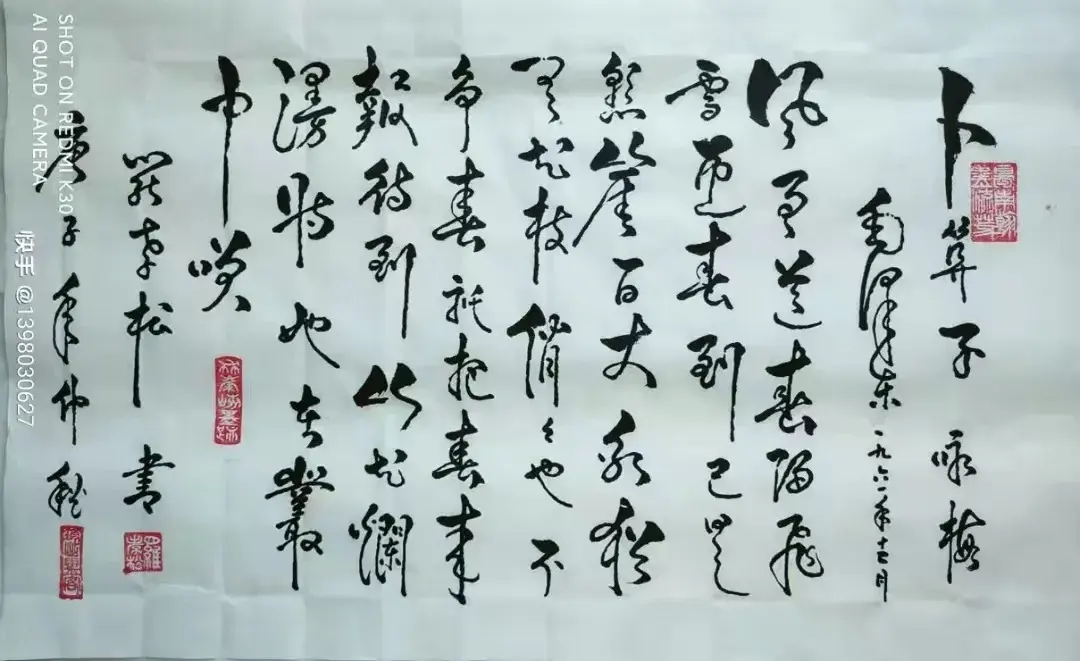 卜算子咏梅
毛泽东 一九六一年十二月
风雨送春归飞
雪迎春到已是
悬崖百丈冰犹
有花枝俏々也不
争春祇把春来
報待到山花爛
漫时她在叢
中咲
罗孝松 書
羅孝松
庚子年仲秋
SHOT ON REDMI K30
AI QUAD CAMERA
快手 @1398030627